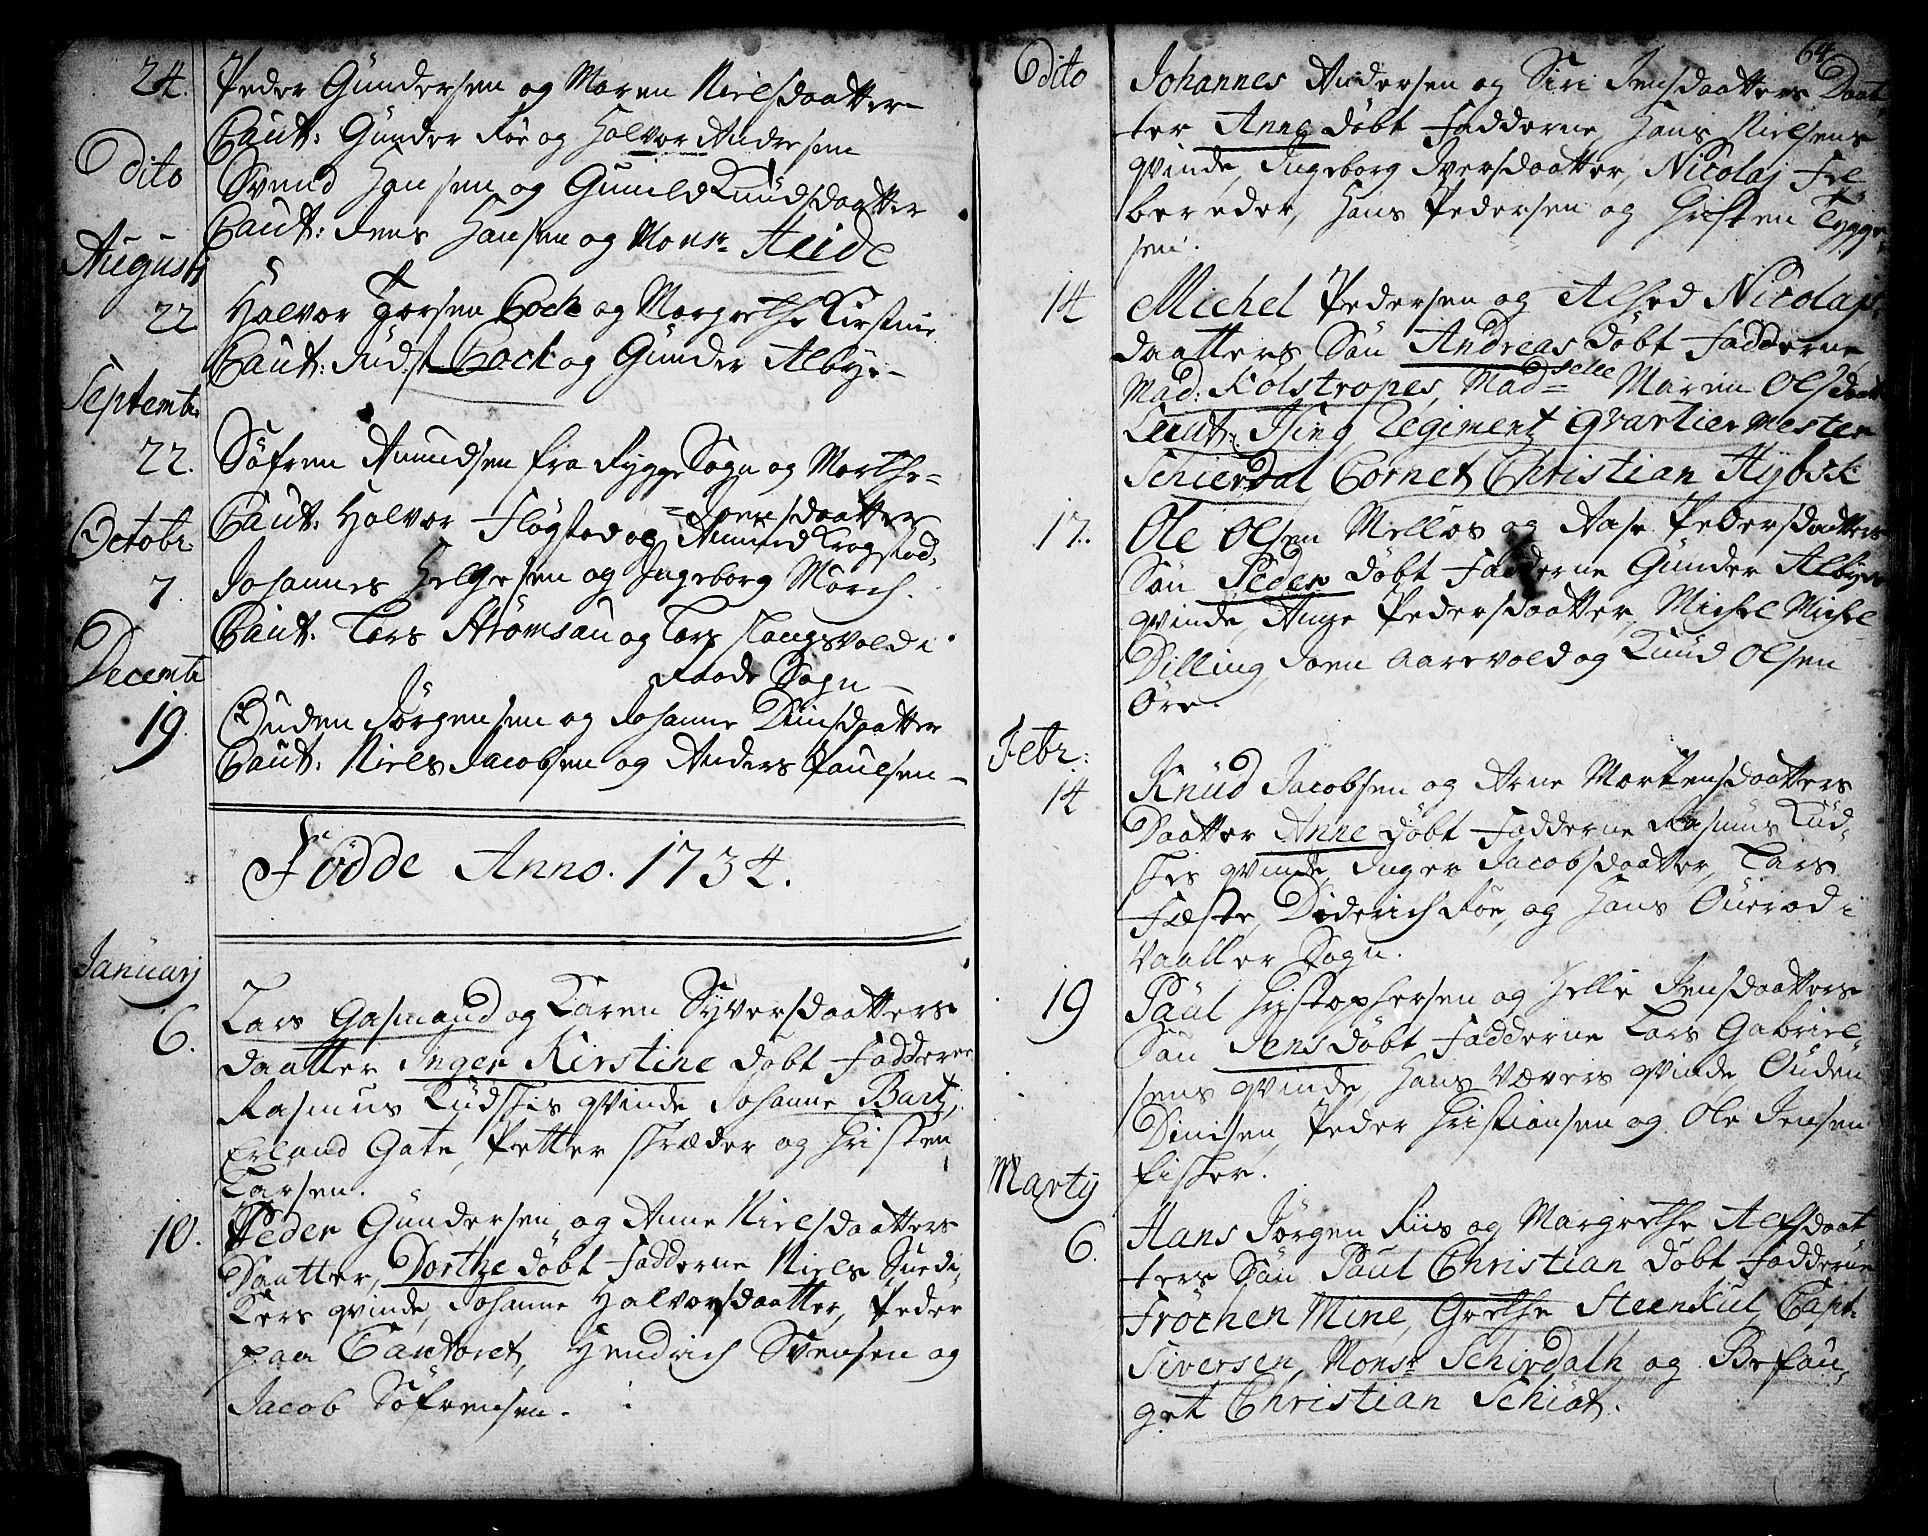 24. Peder Gundersen og Maren Nielsdaatter
Caut: Gunder Röe og Halvor Andersen
Odito Svend Hansen og Gunild Knudsdaatter
Caut: Jens Hansen og Monsr Heide
Augustj
22 Halvor Torsen Cock og Margrethe Kirstine
Caut: Cock og Gunder Albye
Septembr
22. Söfren Amundsen fra Rygge Sogn og Marthe
=Joensdaatter
Caut: Halvor Flögstad og Amund Krogstad
Octobr
7. Johannes Helgesen og Ingeborg Mörch.
Caut: Lars Strömsau og Lars Slangsvold i
Raade Sogn
Decembr
19. Ouden Jörgensen og Johanne Dinisdaatter
Caut: Niels Jacobsen og Anders Paulsen
Födde Anno. 1734.
Januarj
6. Lars Gasmand og Karen Syversdaatters
daatter Inger Kirstine döbt Fadderne
Rasmus Kudskis qvinde Johanne Bartz,
Erland Gate, Petter Skræder og Christen
Larsen.
10. Peder Gundersen og Anne Nielsdaatters
Daatter, Dorthe döbt Fadderne Niels Snedi-
kers qvinde, Johanne Halvorsdaatter, Peder
paa Contoret, Hendrich Svensen og
Jacob Söfrensen.
64.
Odito Johannes Andersen og Siri Jensdaatters Daat
ter Anne döbt Fadderne, Hans Nielsens
qvinde, Ingeborg Iversdaatter, Nicolaj Fel-
bereder, Hans Pedersen og Christen Tygge-
sen.
14 Michel Pedersen og Alhed Nicolajs-
daatters Sön Andreas döbt Fadderne
Mad: Kolstropes, Madselle Maren Olsdaat
Leut: Ising Regiment qvartiermester
Schierdal Cornet Christian Hybsk
17. Ole Olsen Mellös og Aase Pedersdaatters
Sön Peder döbt Fadderne Gunder Albyes
qvinde, Anne Pedersdaatter, Michel Michel
Dilling, Joen Aarevold og Knud Olsen
Öre.
Febr:
14 Knud Jacobsen og Arne Mortensdaatters
Daatter Anne döbt Fadderne Rasmus Kud-
skis qvinde, Inger Jacobsdaatter, Lars
Fæste, Diderich Röe, og Hans Ouerod i
Vaaller Sogn.
19 Paul Christophersen og Helle Jensdaatters
Sön Jens döbt Fadderne Lars Gabriel-
sens qvinde, Hans Vævers qvinde, Ouden
Dinisen, Peder Christiansen og Ole Jensen
Fisker.
Martij
6. Hans Jörgen Riis og Margrethe Alfsdaat
ters Sön Paul Christian döbt Fadderne
Fröchen Mine, Grethe Steenkul, Capt:
Siversen, Monsr Schirdalh og Befau-
get Christian Schiöt.